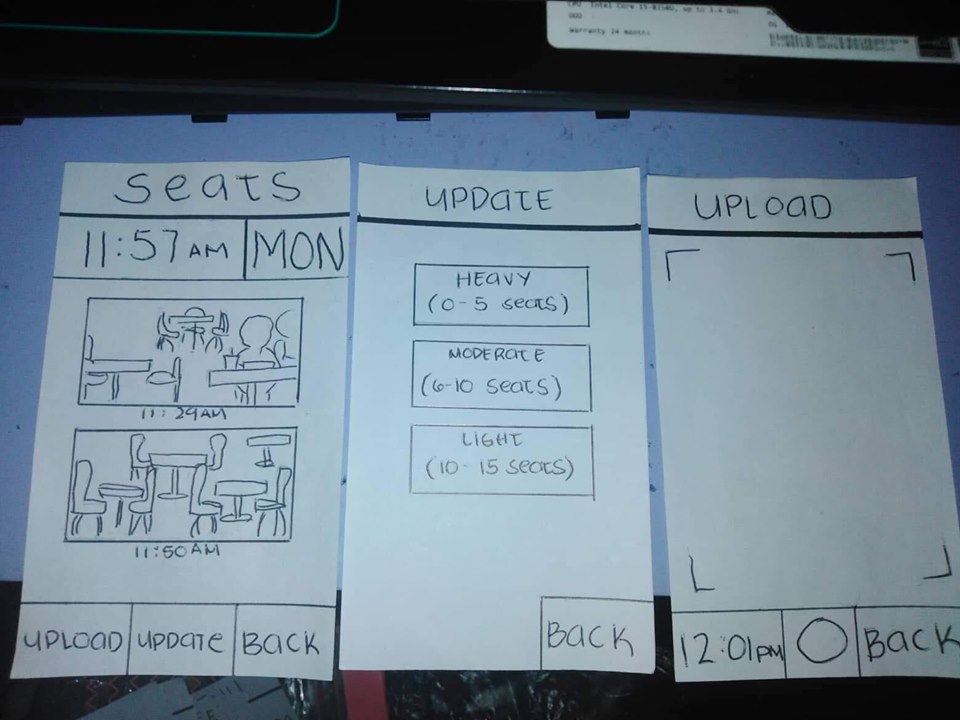 CPU Intel Core i5-8250U, up to 3.4 GHz
Warranty 24 months
Seats
11:57 AM MON
11:29AM
11:50AM
UPLOAD UPDATE BACK
UPDATE
HEAVY
(0-5 seats)
MODERATE
(6-10 seats)
LIGHT
(10-15 seats)
BACK
UPLOAD
12:01PM BACK